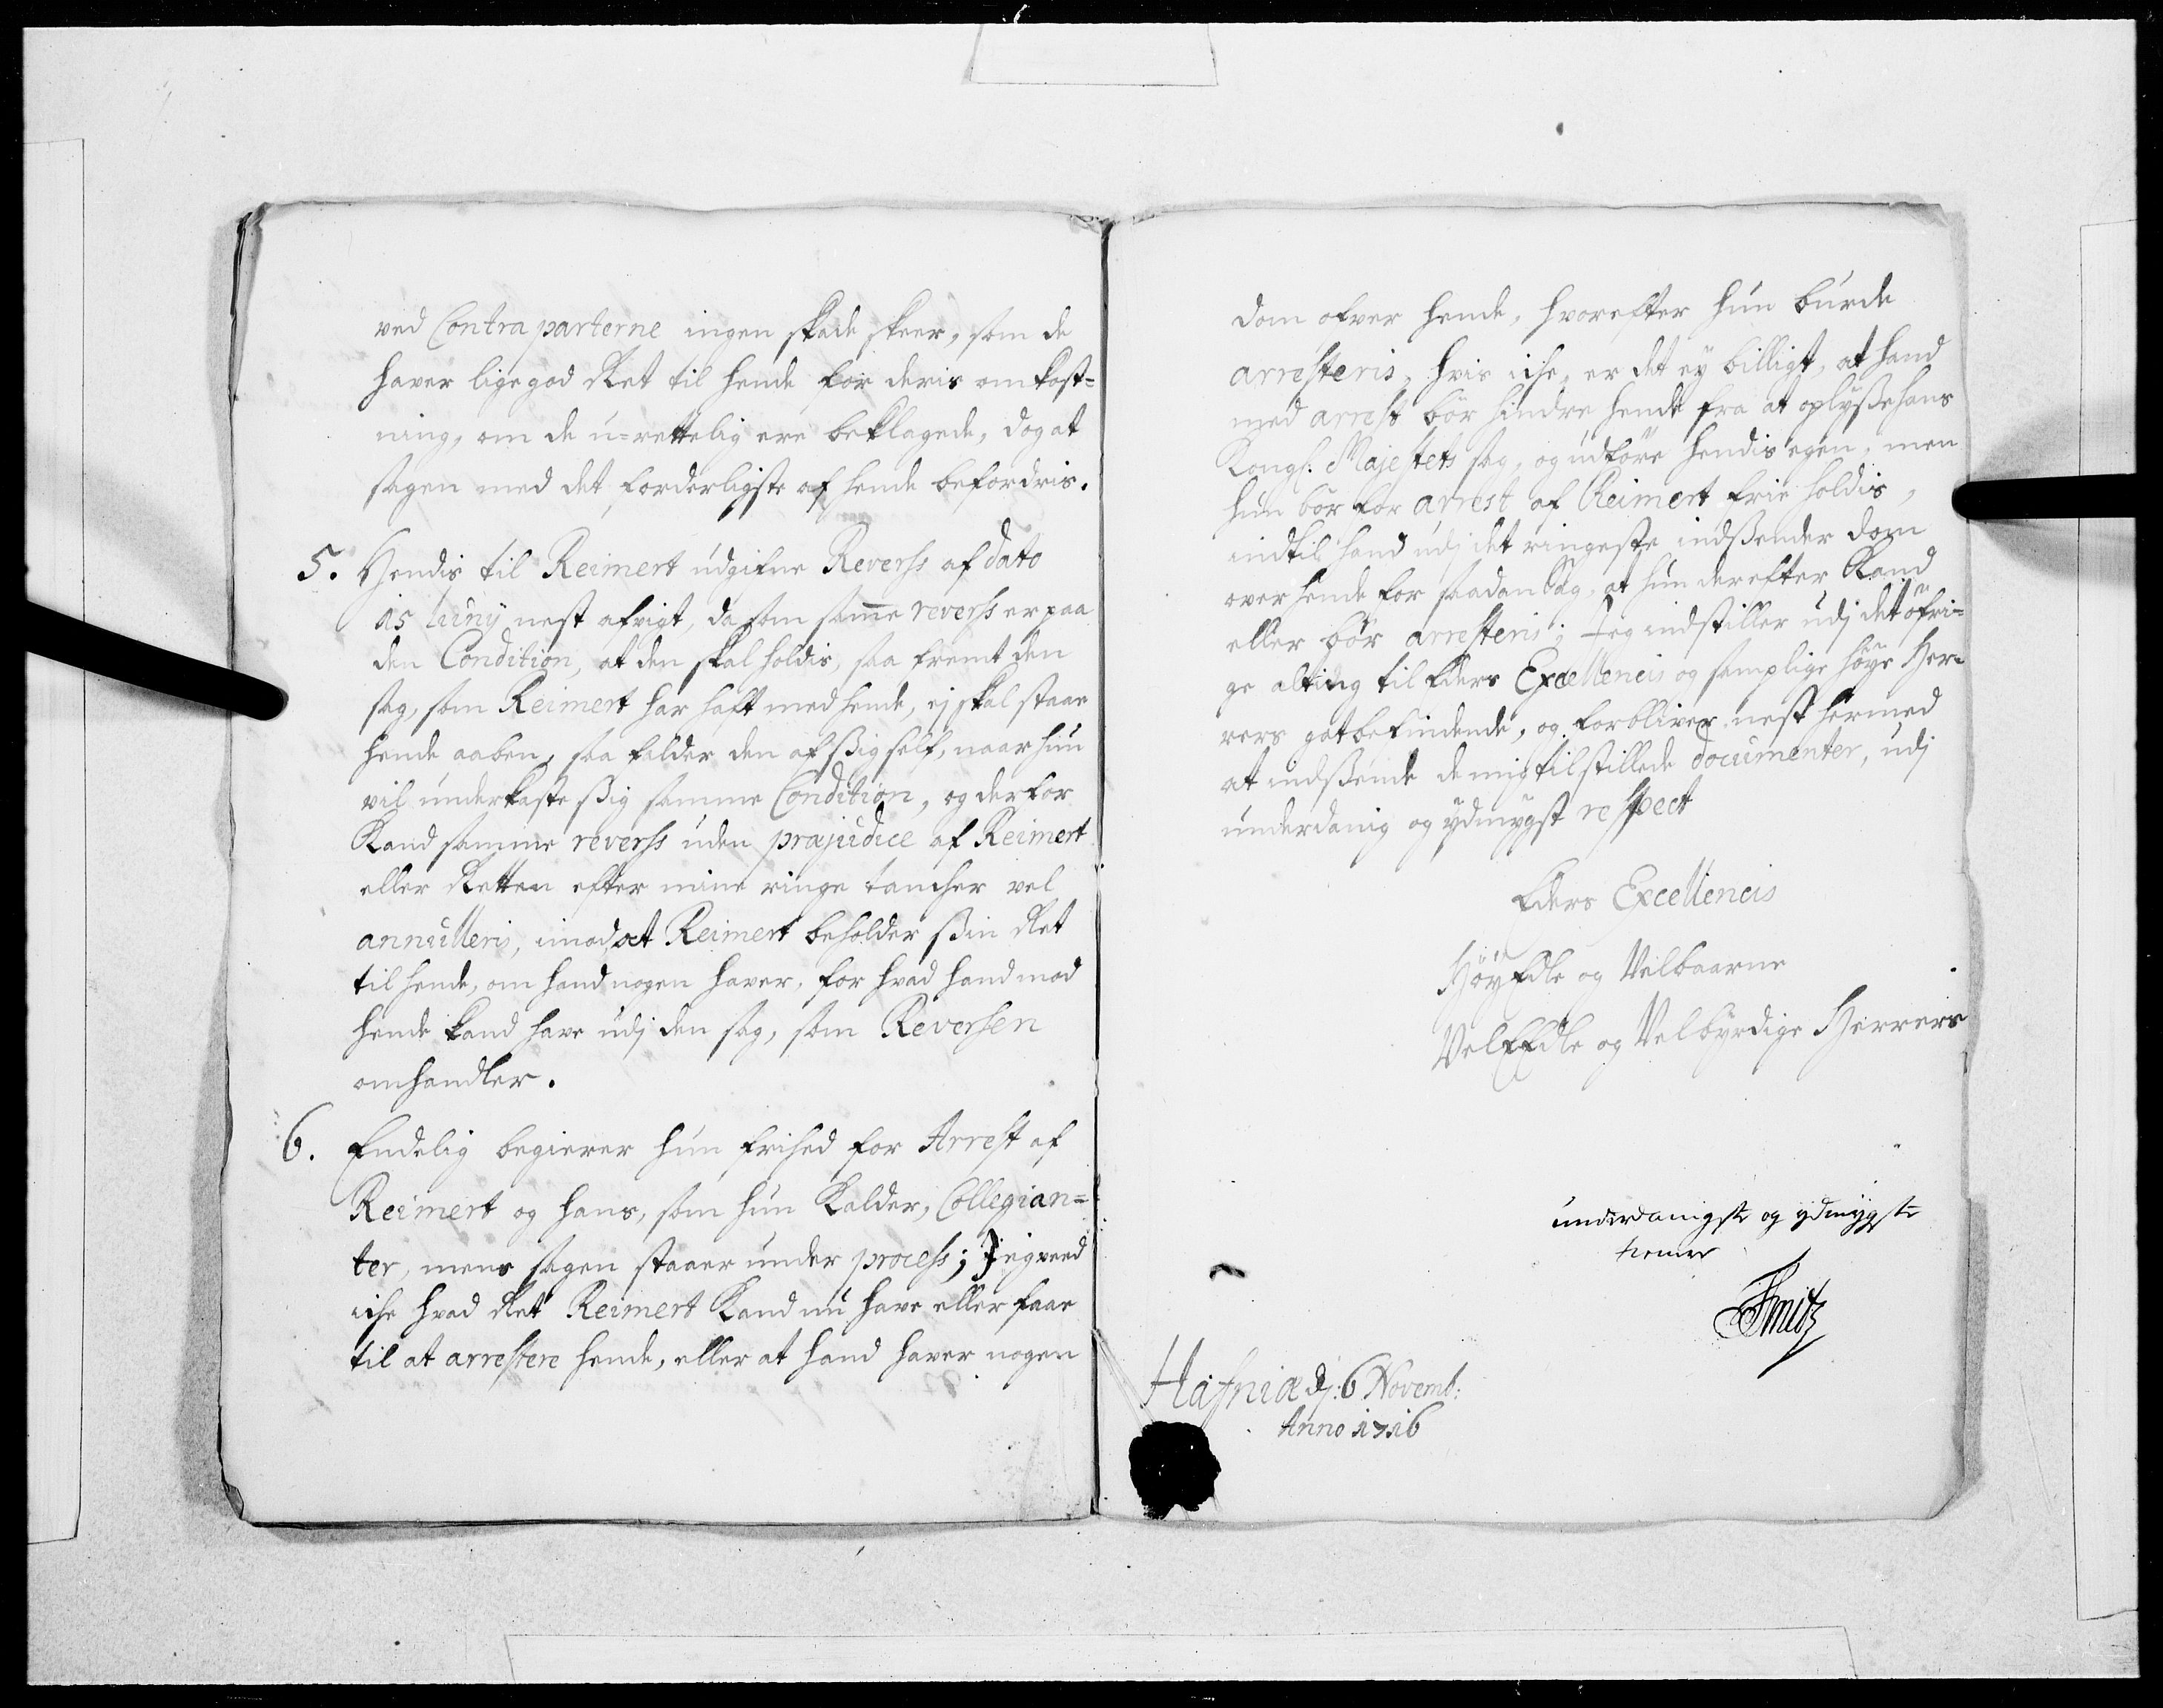 ved Contraparterne ingen skade skeer, som de
haver ligegod Ret til hende for deris omkost=
ning, om de u=rettelig ere beklagede, dog at
sagen med det forderligste af hende befordris.
5. Hendis til Reimert udgifne Reverss af dato
15 Juny nest afvigt, da som same reverss er paa
den Condition, at den skal holdis, saa fremt den
sag, som Reimert har haft med hende, ej skal staae
hende aaben, saa falder den af sig self, naar hun
vil underkaste sig samme Condition, og derfor
Kand samme reverss uden præjudice af Reimert
eller Retten efter mine ringe tancher vel
annulleris, imod at Reimert beholder sin Ret
til hende, om hand nogen haver, for hvad hand mod
hende kand have udj den sag, som Reversen
omhandler.
6. Endelig begierer hun frihed for Arrest af
Reimert og hans, som hun Kalder, Collegian=
ter, mens sagen staaer under process; Jeg veed
iche hvad Ret Reimert Kand nu have eller faae
til at arrestere hende, eller at hand haver nogen
dom ofver hende, hvorefter hun burde
arresteris, hvis iche, er det ey billigt, at hand
med arrest bør hindre hende fra at oplysse hans
Kongl. Majestets sag, og udføre hendis egen, men
hun bør for arrest af Reimert frie holdis,
indtil hand udj det ringeste indsender dom
over hende for saadan sag, at hun derefter Kand
eller bør arresteris; Jeg indstiller udj det øfri=
ge alting til Eders Excellencis og samplige høye Her=
rers gotbefindende, og forbliver nest hermed
at indsende de mig tilstillede documenter, udj
underdanig og ydmygst respect
Eders Excellencis
HøyEdle og Velbaarne
VelEdle og Velbyrdige Herrers
underdanigste og ydmygste
tiener
Smitz
Hafniæ dj: 6 Novemb:
Anno 1716